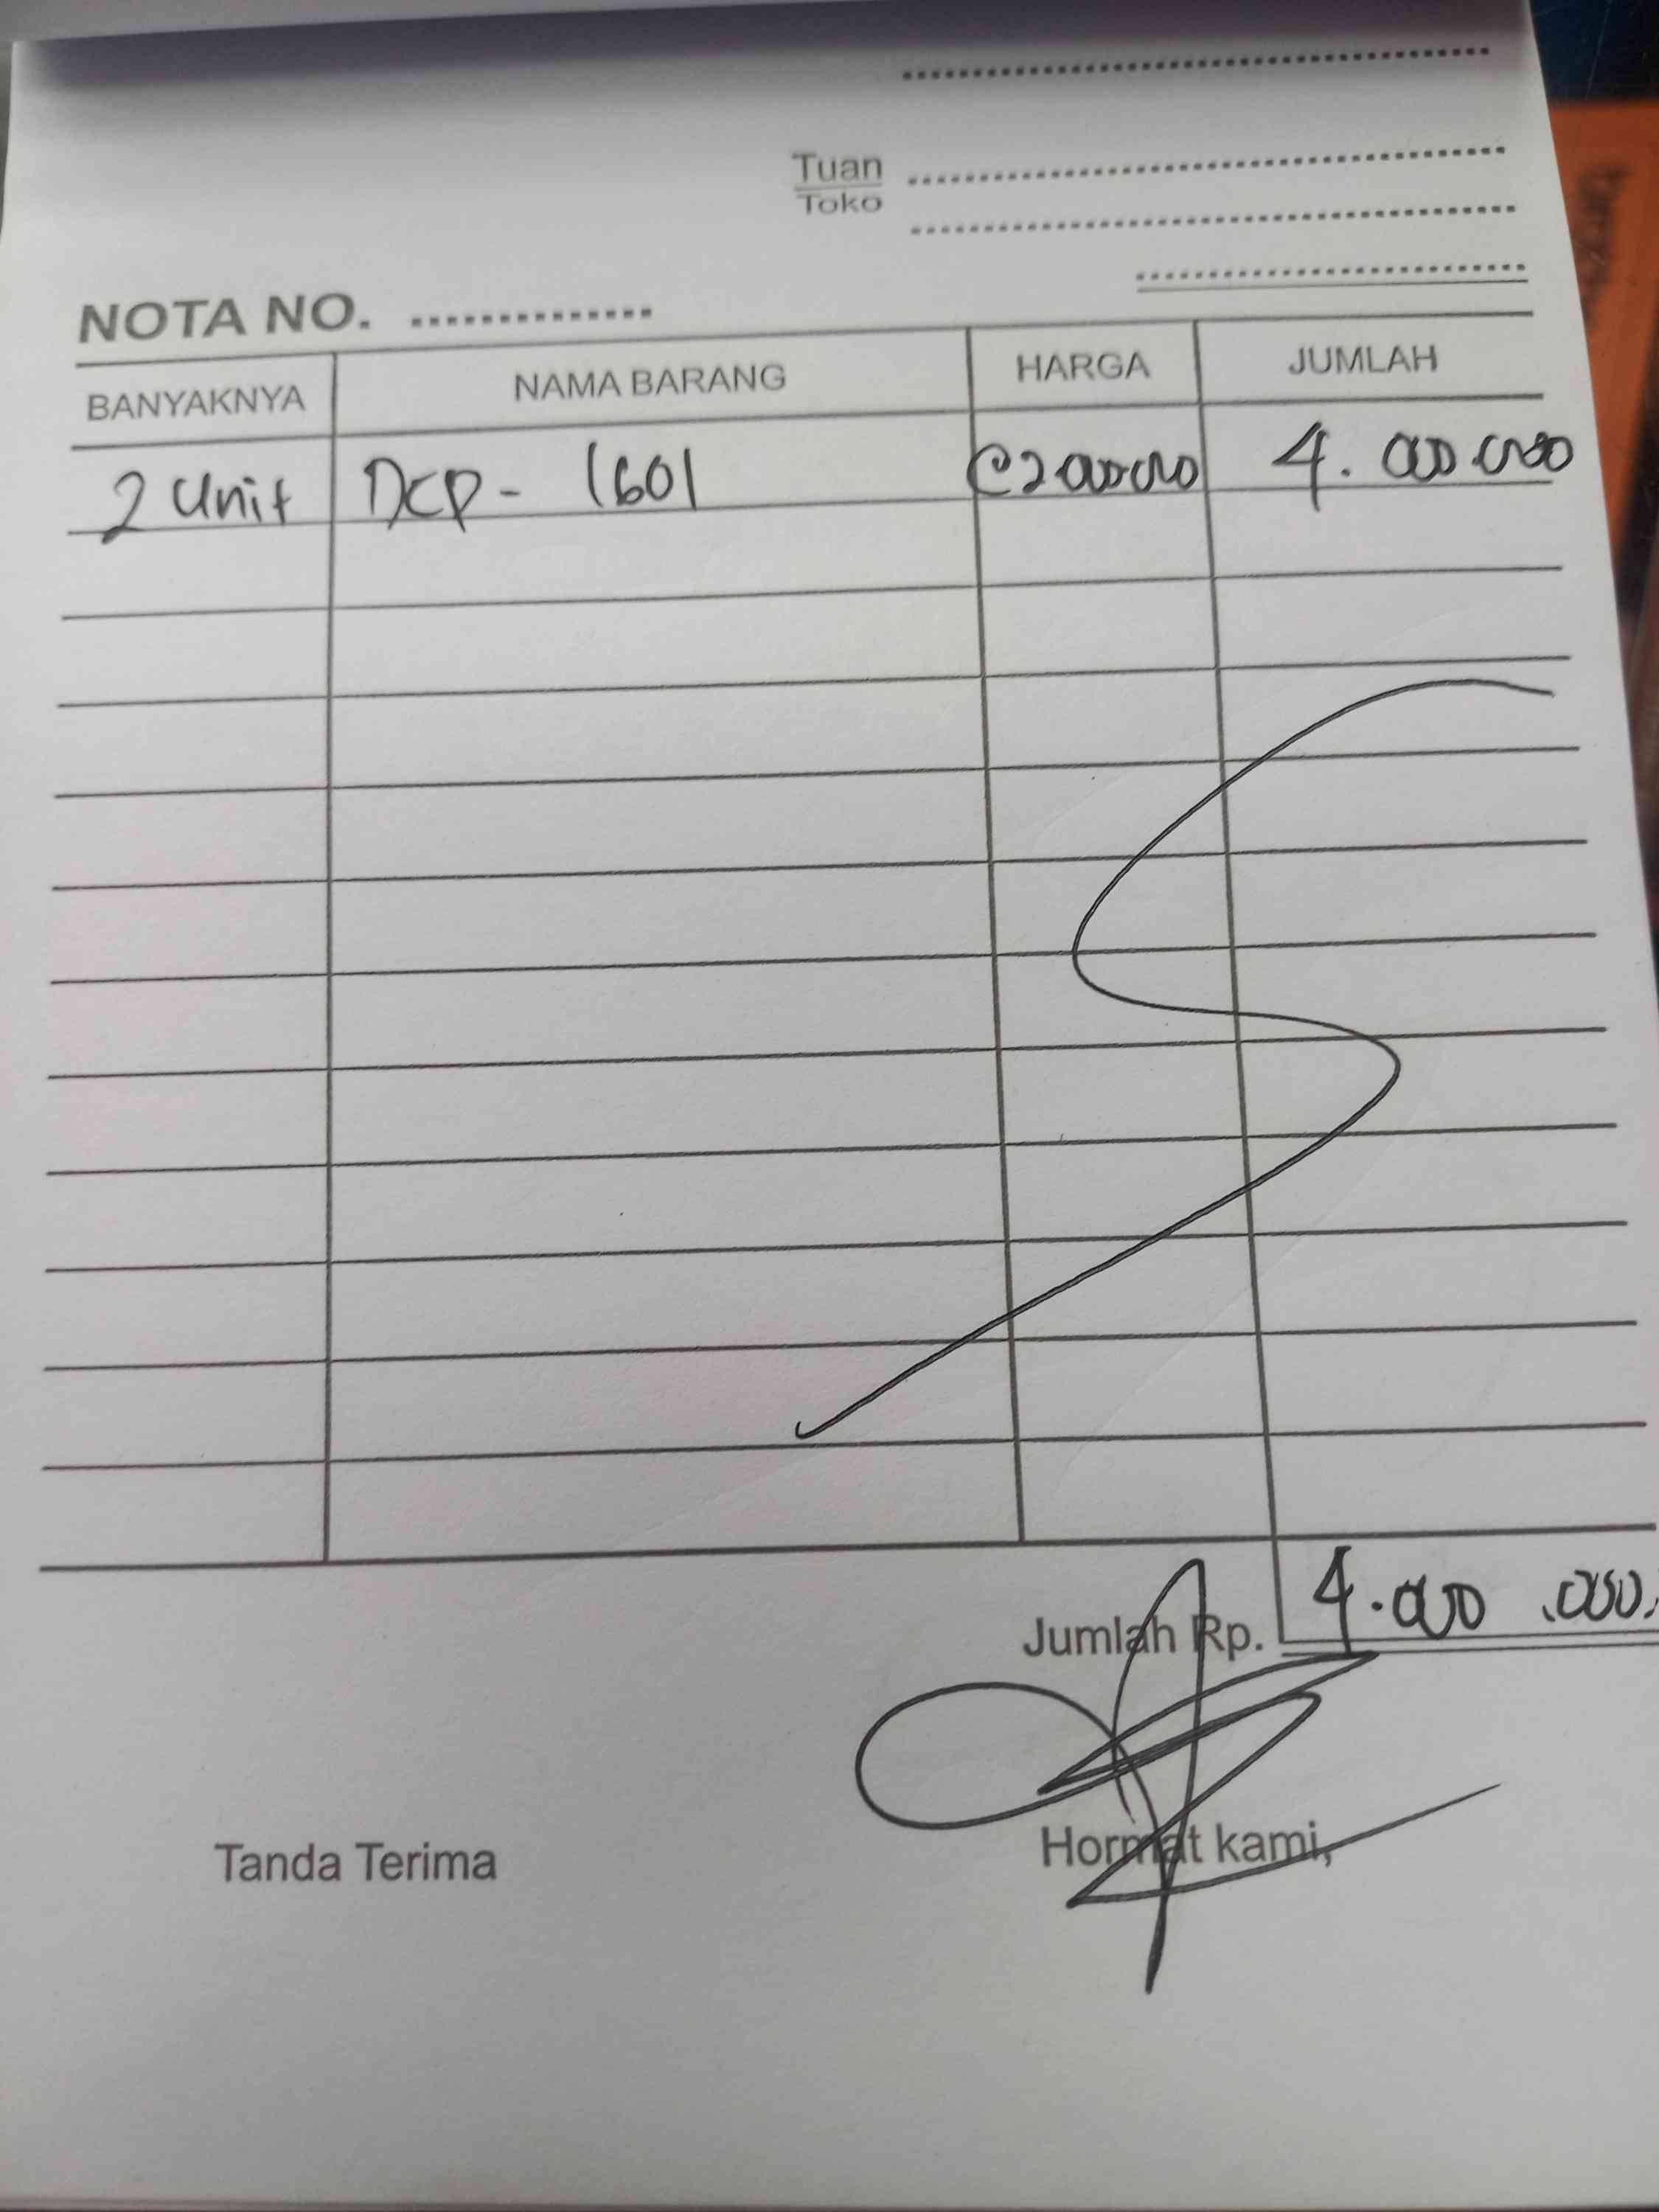 Tuan
Toko
NOTA NO.
BANYAKNYA NAMA BARANG HARGA JUMLAH
2 Unit DCP - 1601 @2000000 4.000.000
Jumlah Rp. 4.000.000.
Tanda Terima Hormat kami,